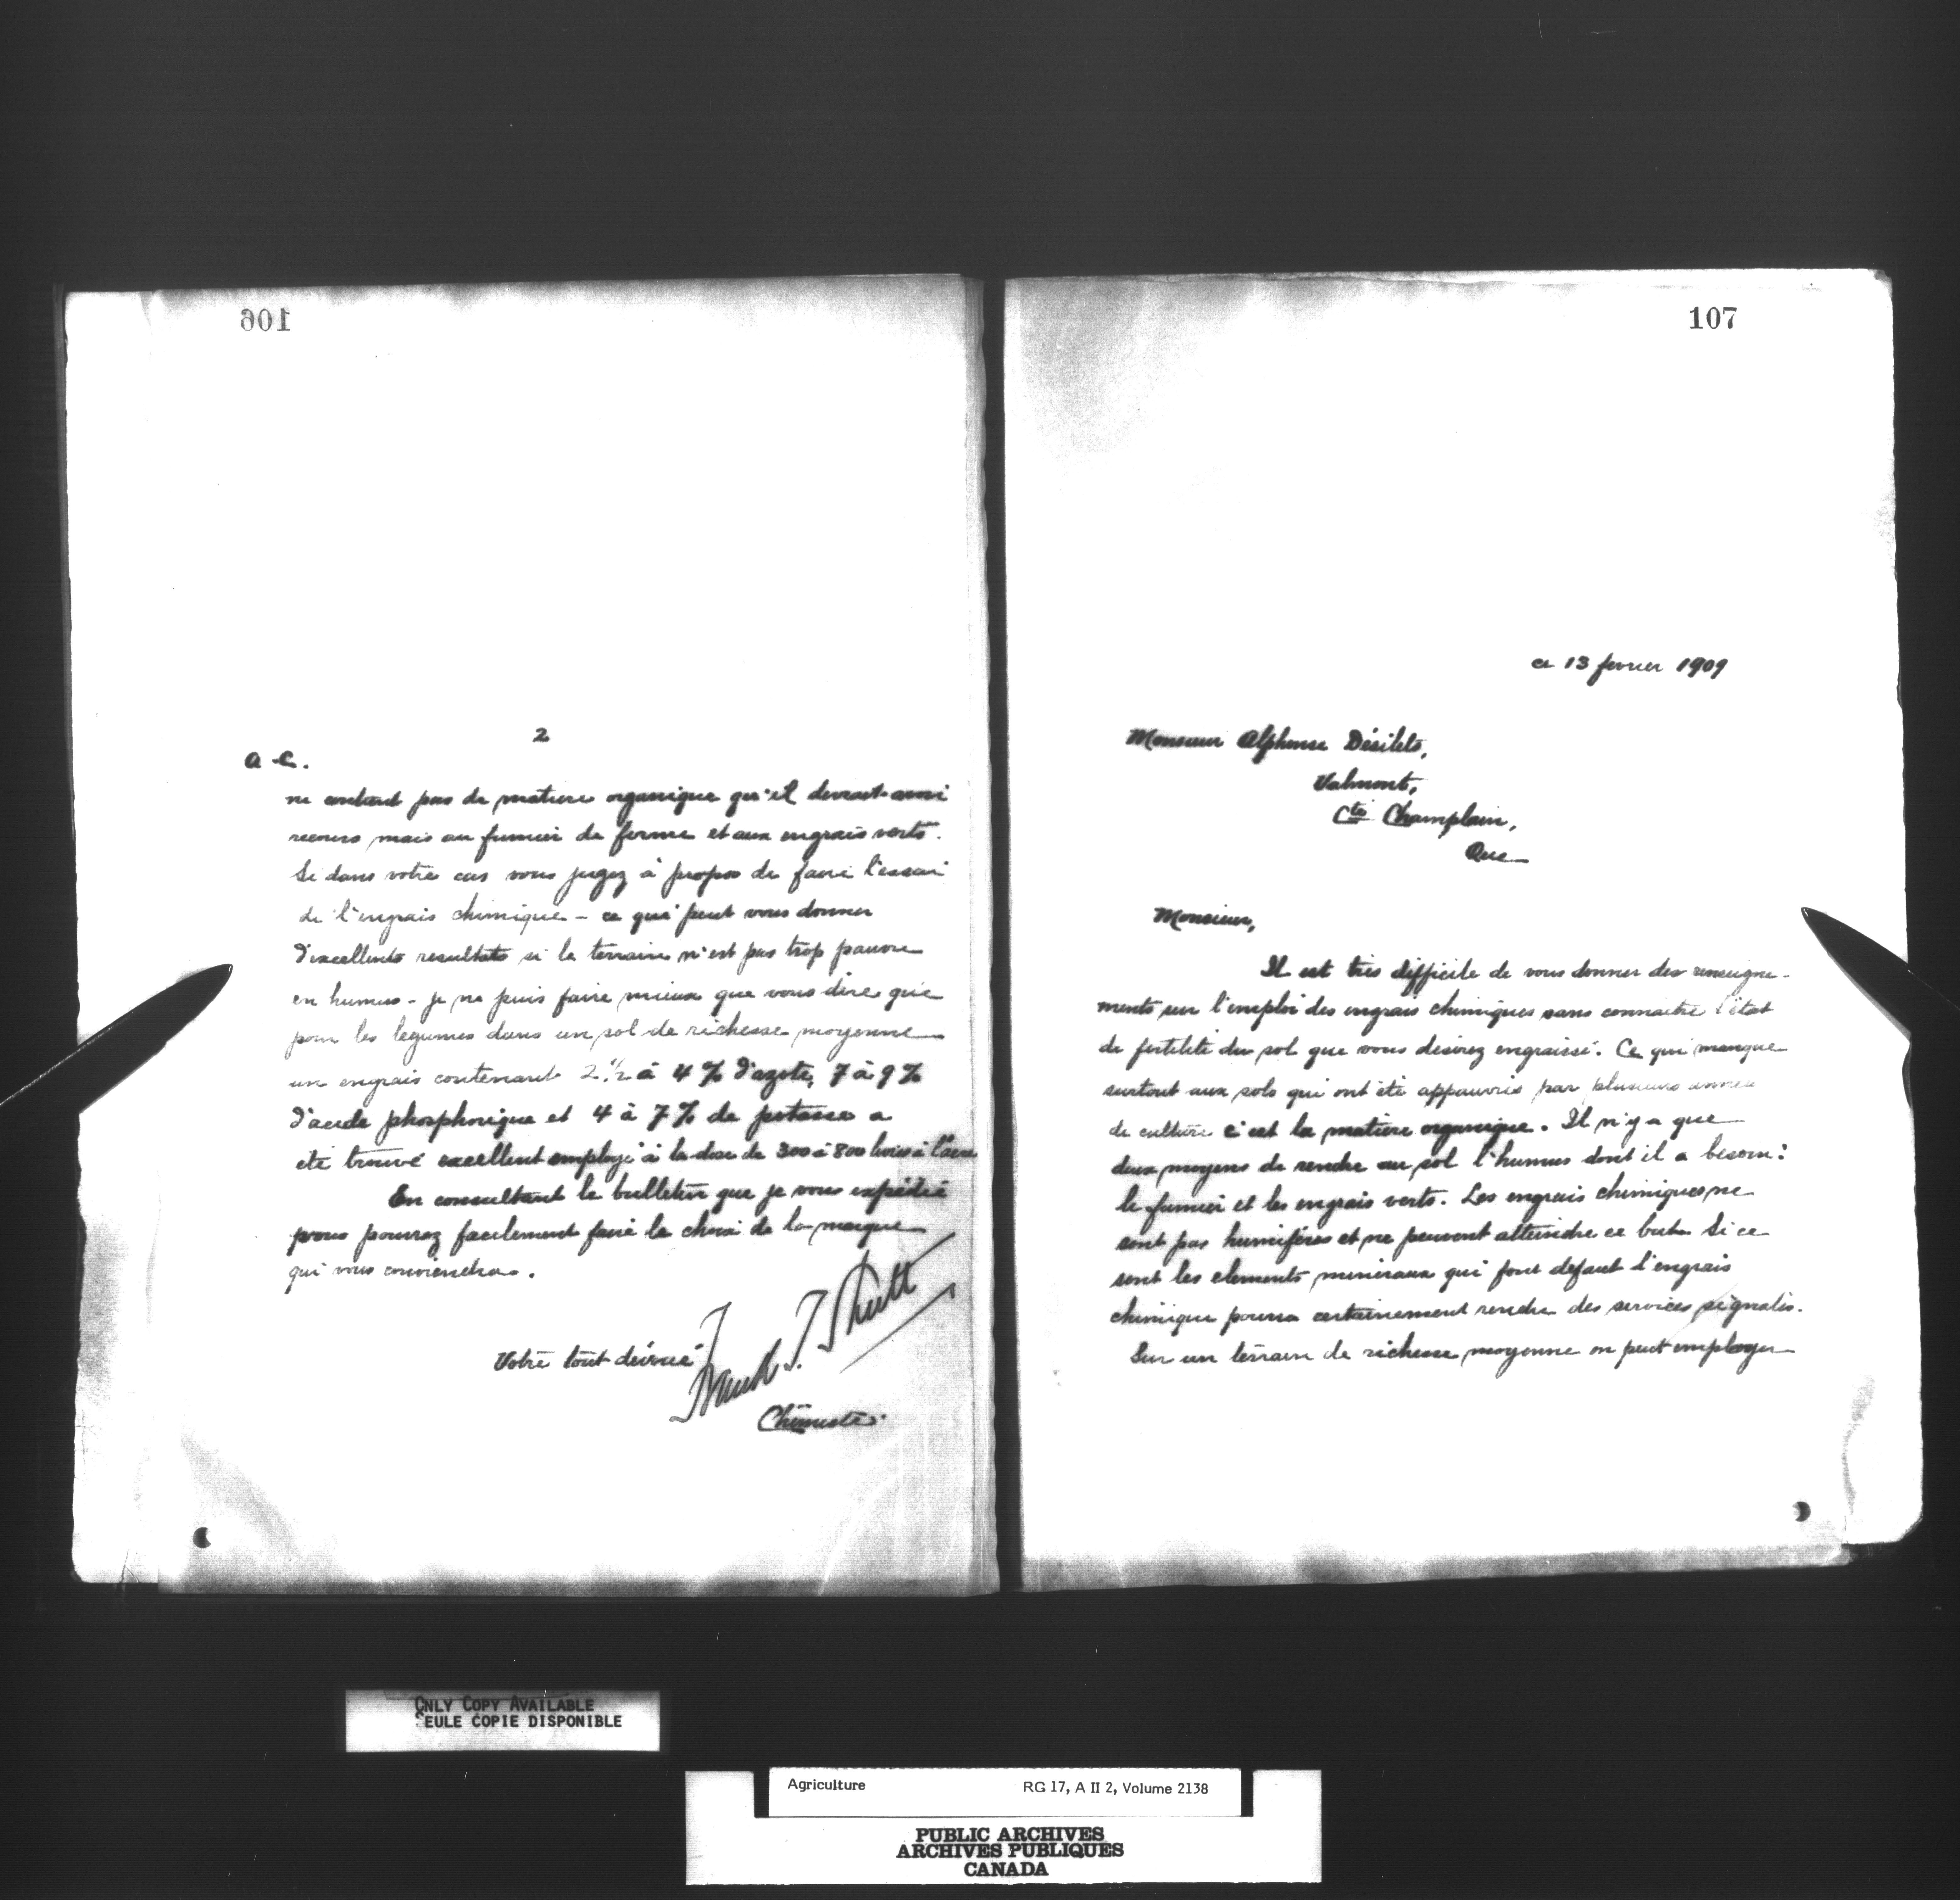 106
2
A. C.
ne contient pas de matiere organique qu'il devrait avoir
recours mais au fumier de ferme et aux engrais verts.
Si dans votre cas vous jugez à propos de faire l'essai
de l'engrais chimique - ce qui peut vous donner
d'excellents resultats si le terrain n'est pas trop pauvre
en humus - je ne puis faire mieux que vous dire que
pour les legumes dans un sol de richesse moyenne
un engrais contenant 2 1/2 à 4 % d'azote, 7 à 9 %
d'acide phosphorique et 4 à 7 % de potasse a
eté trouvé excellent employé à la dose de 300 à 800 livres à l'acre
En consultant le bulletin que je vous expédie
vous pourrez facilement faire le choix de la marque
qui vous conviendra.
Votre tout dévoué
Frank T. Shutt
Chimiste.
107
ce 13 fevrier 1909
Monsieur Alphonse Désilets,
Valmont,
Cté Champlain,
Que
Monsieur,
Il est très difficile de vous donner des renseigne-
ments sur l'emploi des engrais chimiques sans connaitre l'état
de fertilité du sol que vous desirez engraissé. Ce qui manque
surtout aux sols qui ont été appauvris par plusieurs années
de culture c'est la matiere organique. Il n'y a que
deux moyens de rendre au sol l'humus dont il a besoin:
le fumier et les engrais verts. Les engrais chimiques ne
sont pas humifères et ne peuvent atteindre ce but. Si ce
sont les elements mineraux qui font defaut l'engrais
chimique pourra certainement rendre des services signalés.
Sur un terrain de richesse moyenne on peut employer
ONLY COPY AVAILABLE
SEULE COPIE DISPONIBLE
Agriculture RG 17, A II 2, Volume 2138
PUBLIC ARCHIVES
ARCHIVES PUBLIQUES
CANADA